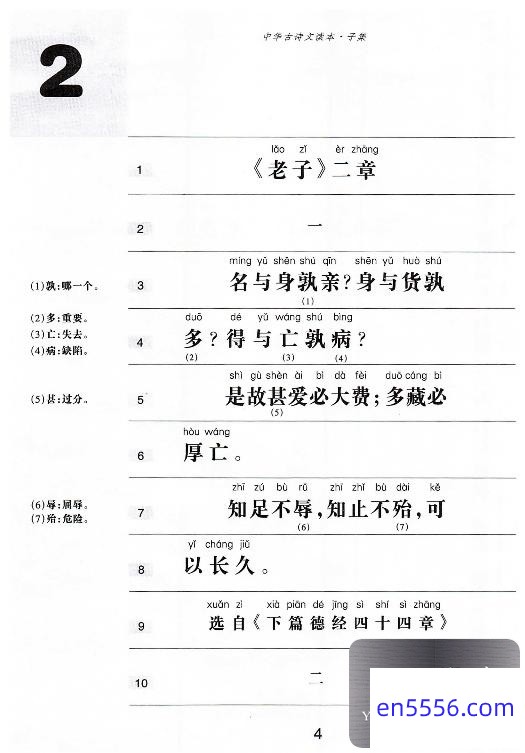 中华古诗文读本·子集
2
lǎo zǐ èr zhāng
1 《老子》二章
2 一
míng yǔ shēn shú qīn shēn yǔ huò shú
(1)孰:哪一个。 3 名与身孰亲?身与货孰
(1)
(2)多:重要。
duō dé yǔ wáng shú bìng
(3)亡:失去。 4 多?得与亡孰病?
(4)病:缺陷。 (2) (3) (4)
shì gù shèn ài bì dà fèi duō cáng bì
(5)甚:过分。 5 是故甚爱必大费;多藏必
(5)
hòu wáng
6 厚亡。
zhī zú bù rǔ zhī zhǐ bù dài kě
(6)辱:屈辱。 7 知足不辱,知止不殆,可
(7)殆:危险。 (6) (7)
yǐ cháng jiǔ
8 以长久。
xuǎn zì xià piān dé jīng sì shí sì zhāng
9 选自《下篇德经四十四章》
10 二
en5556.com
4